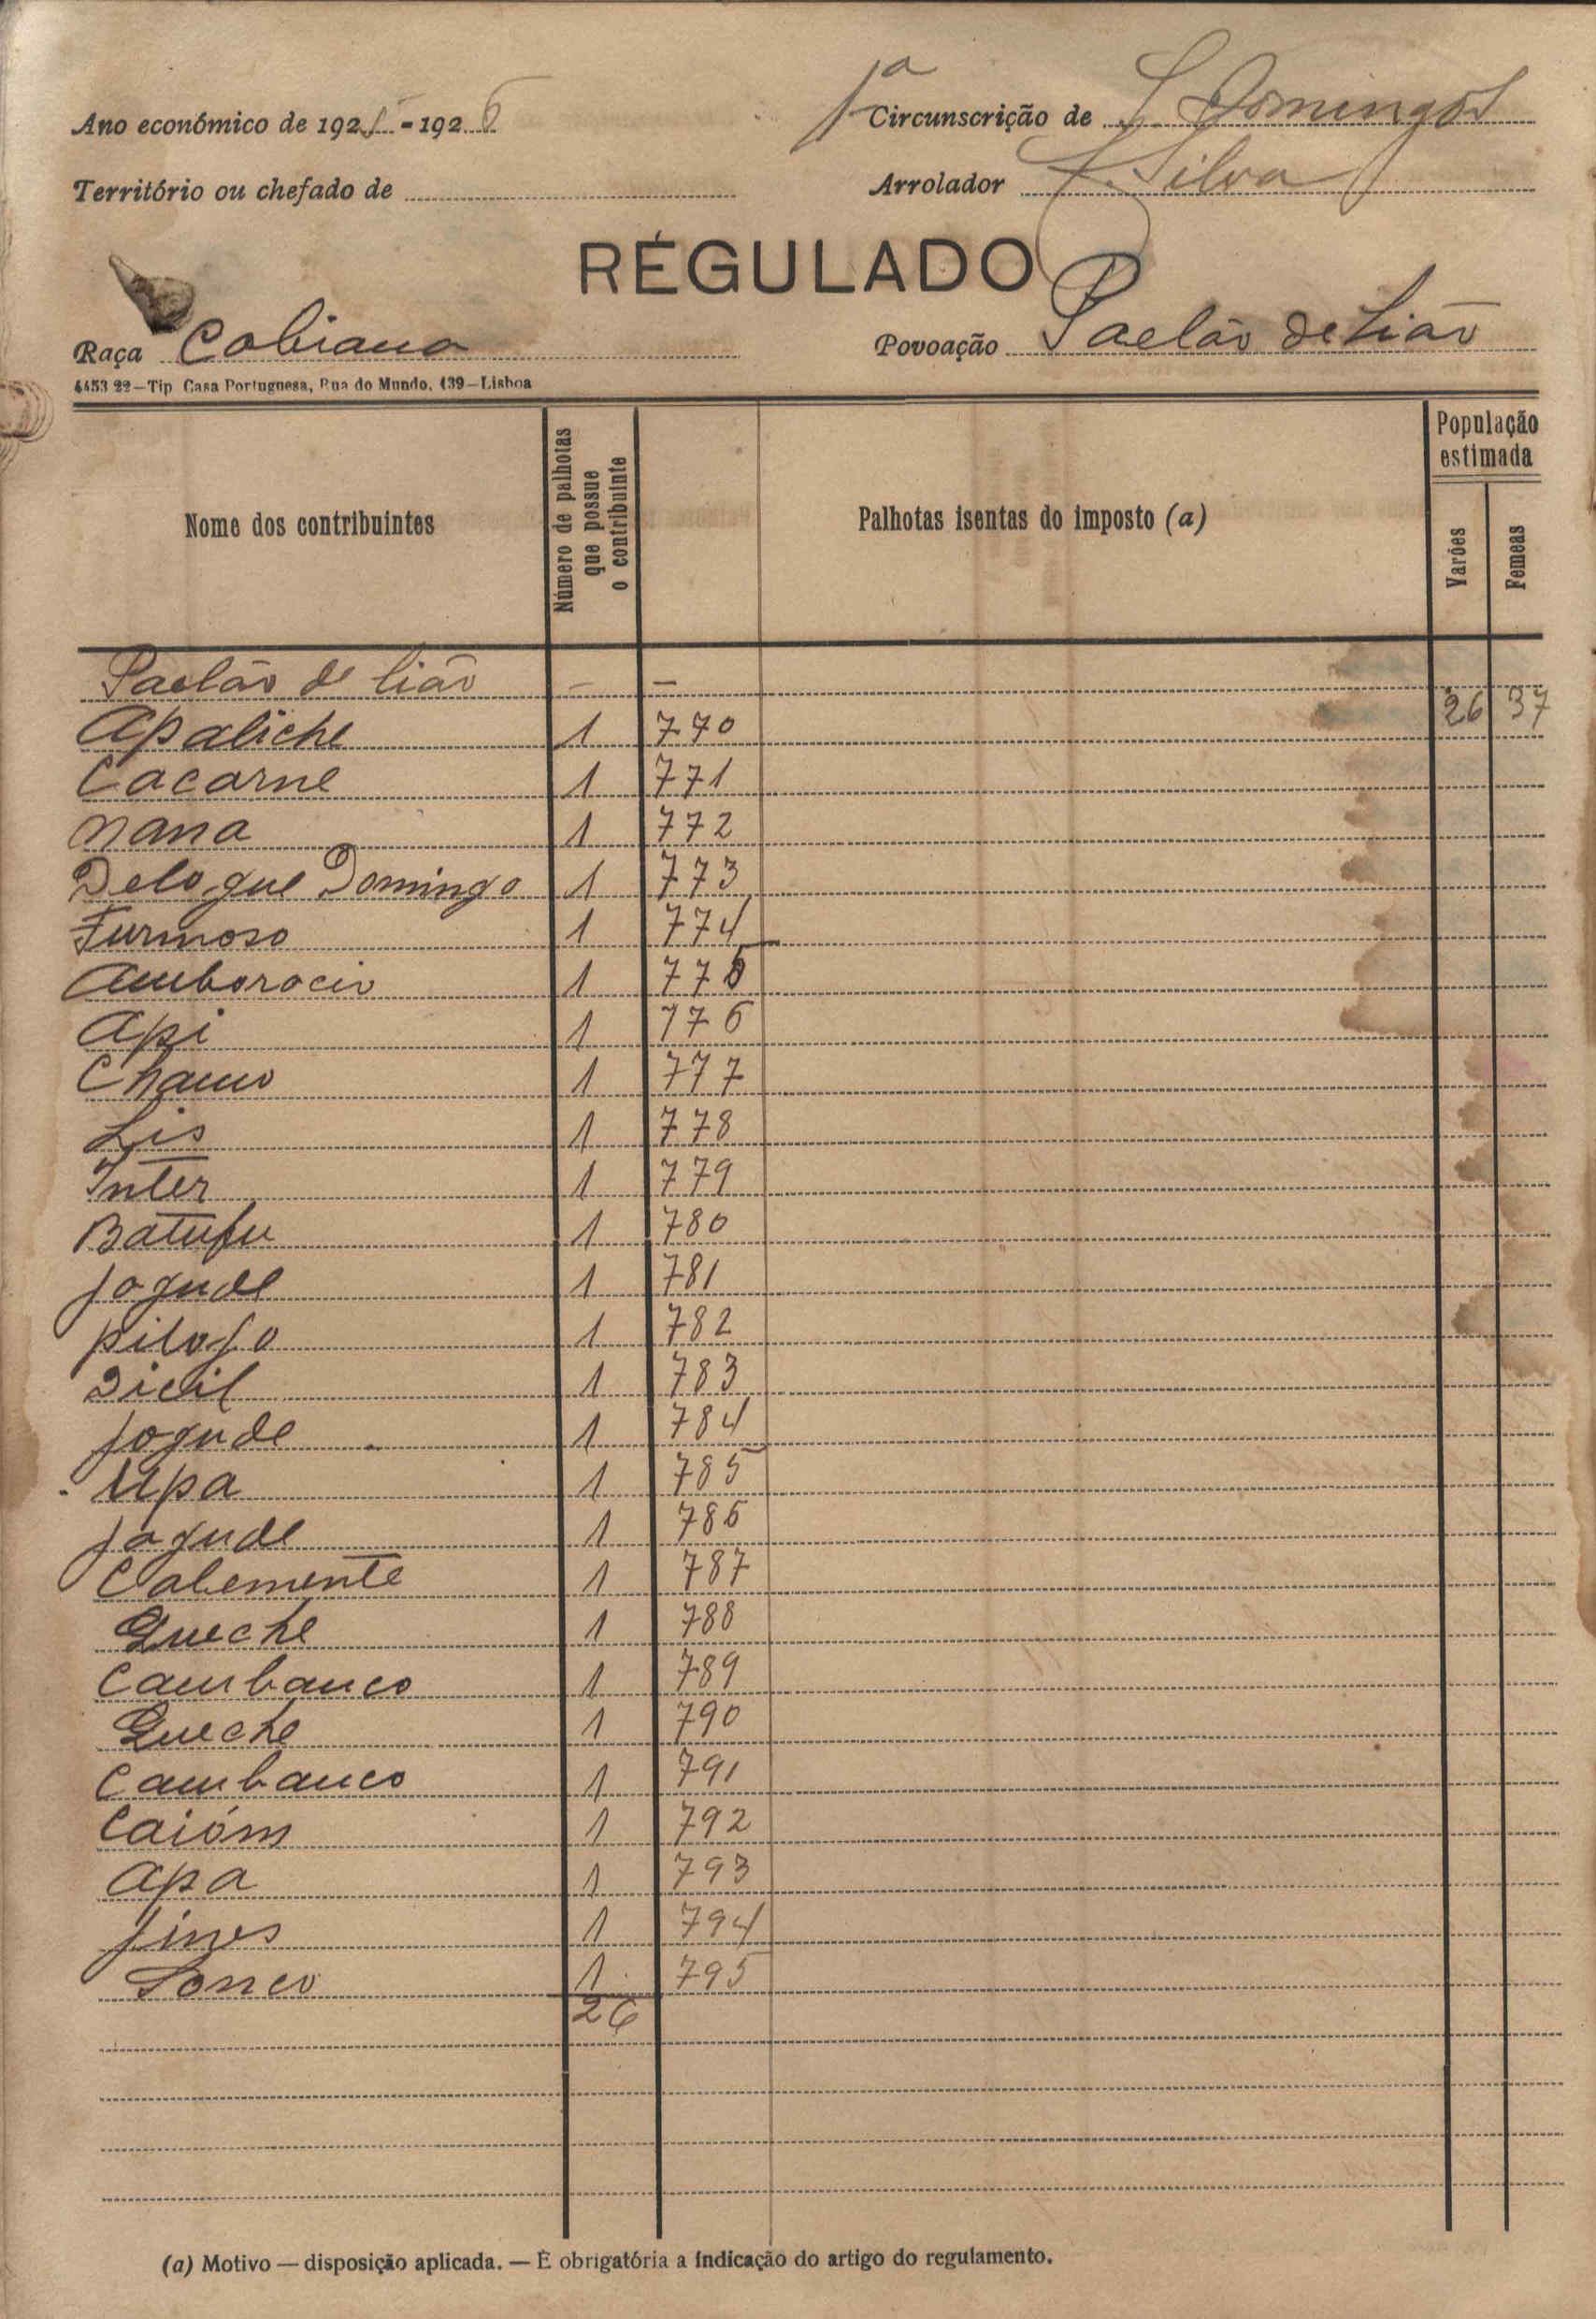 1ª Circunscrição de S. Domingos
Ano económico de 1925-1926
Território ou chefado de
Arrolador F. Silva
RÉGULADO
Raça Cobiana
Povoação Paelão de Lião
4453 22—Tip Casa Portuguesa, Rua do Mundo, 139—Lisboa
Nome dos contribuintes
Número de palhotas que possue o contribuinte
Palhotas isentas do imposto (a)
População estimada
Varões
Femeas
Paelão de Lião - -
26 37
Apaliche 1 770
Cacarne 1 771
Nana 1 772
Delogue Domingo 1 773
Furmoso 1 774
Amborocio 1 775
Api 1 776
Chamo 1 777
Lis 1 778
Inter 1 779
Batufu 1 780
Jogude 1 781
Pilofo 1 782
Dicil 1 783
Jogude 1 784
Upa 1 785
Jogude 1 786
Calemente 1 787
Queche 1 788
Cambanco 1 789
Queche 1 790
Cambanco 1 791
Caióm 1 792
Apa 1 793
Jines 1 794
Sonco 1 795
26
(a) Motivo — disposição aplicada. — É obrigatória a indicação do artigo do regulamento.